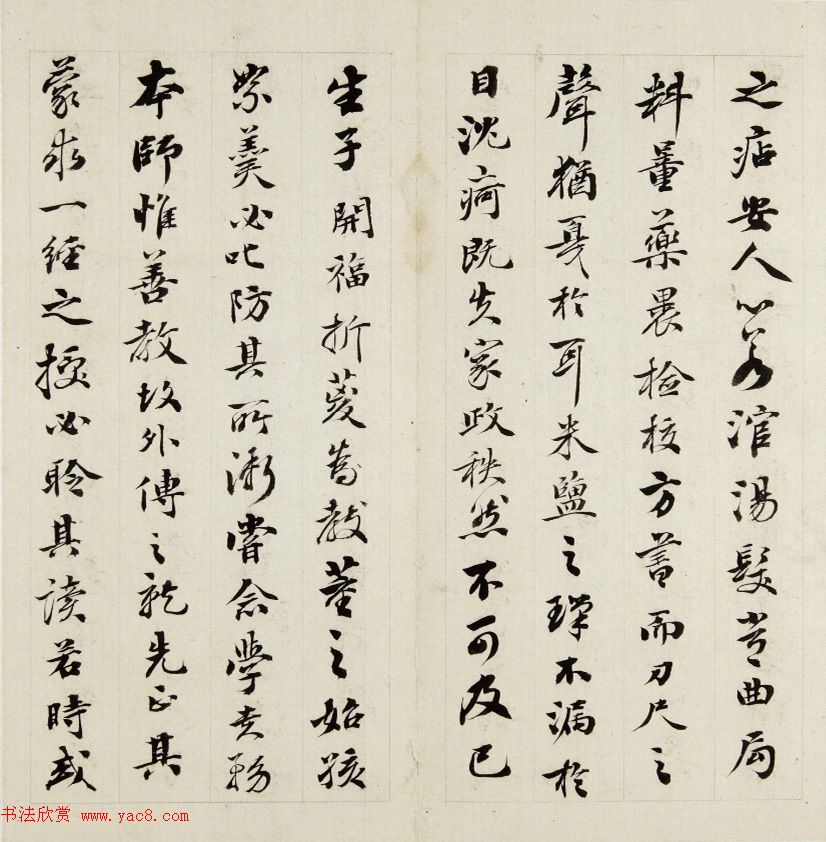 之痁安人心若涫湯髮常曲局
料量藥裹檢校方書而刀尺之
聲猶戛於耳米鹽之瑣不漏於
目沈痾既失家政秩然不可及已
生子開福折葼為教董之始孩
絮羹必叱防其所漸嘗念學貴務
本師惟善教故外傅之就先正其
蒙求一經之授必聆其讀若時或
书法欣赏 www.yac8.com